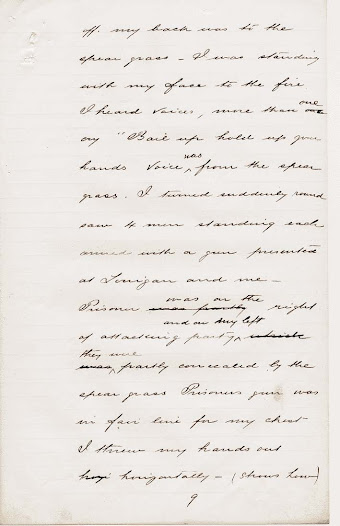 off. my back was to the
spear grass - I was standing
with my face to the fire
I heard voices, more than one
cry "Bail up hold up your
hands voice was from the spear
grass. I turned suddenly round
saw 4 men standing each
armed with a gun presented
at Lonigan and me -
Prisoner was partly was on the right
of attacking party, and on my left which
was, they were partly concealed by the
spear grass Prisoners gun was
in fair line for my chest
I threw my hands out
horizontally - (shows how)
9